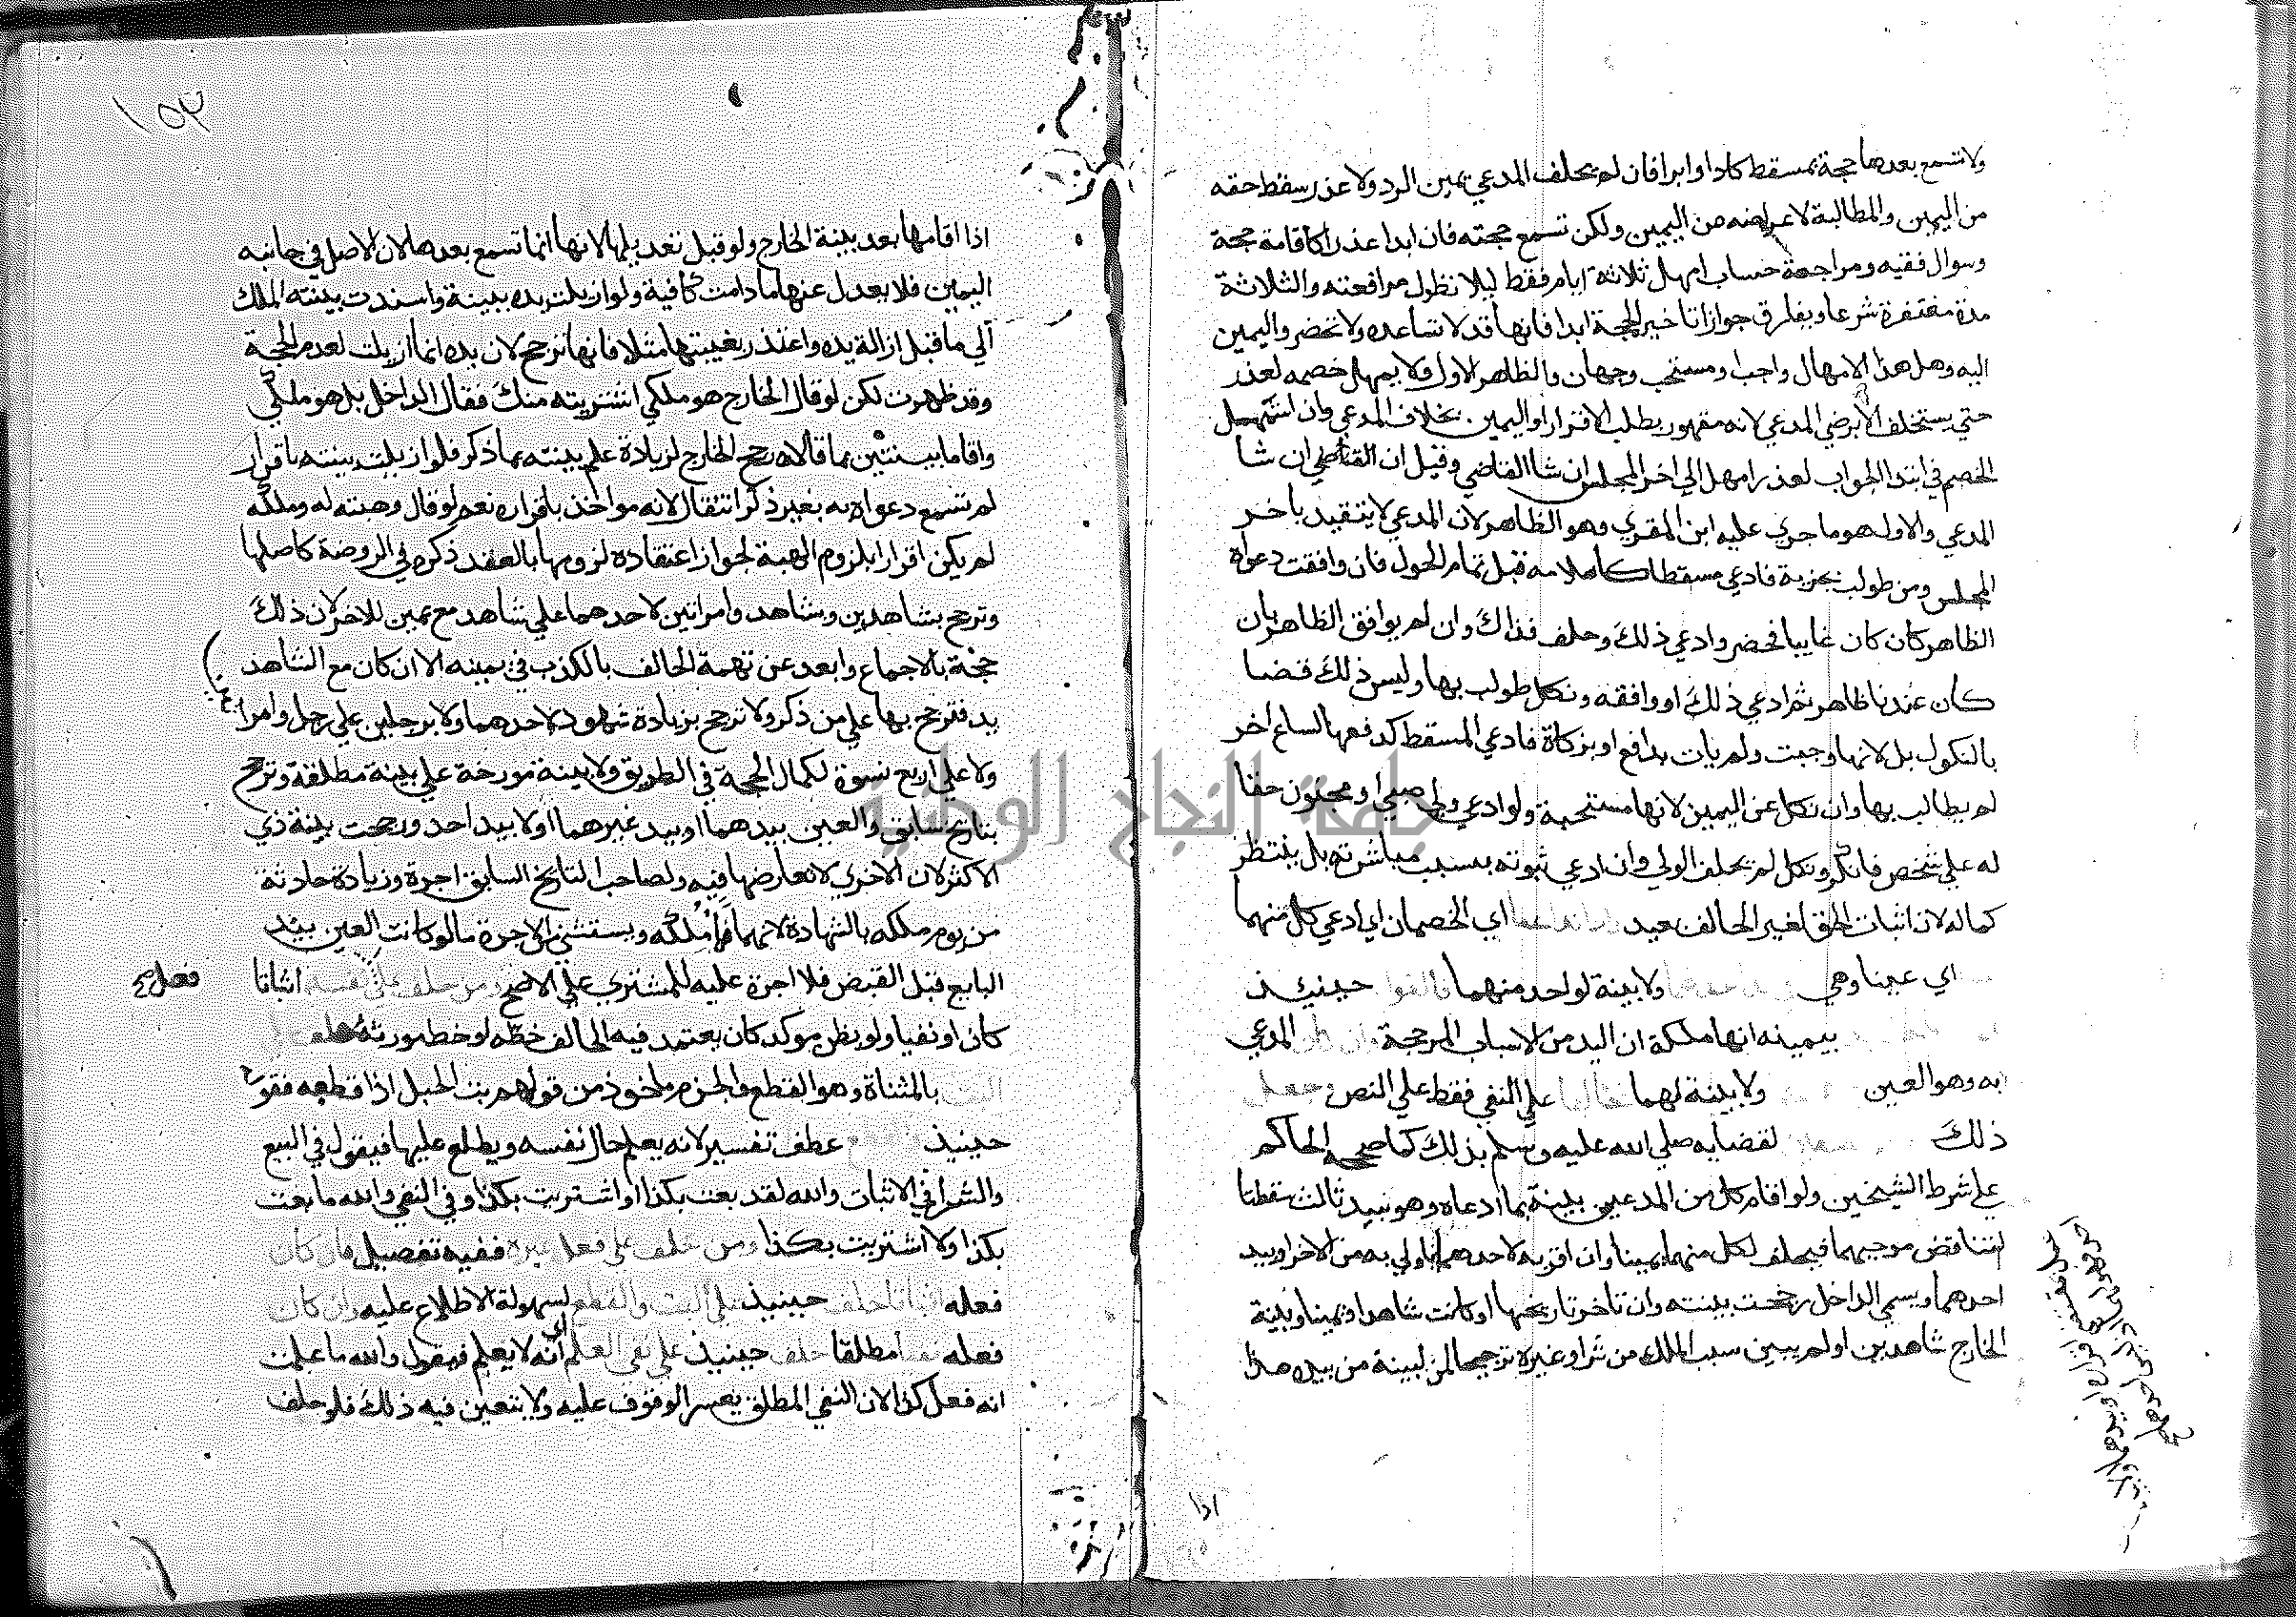 ولا تسمع بعدها حجة بمسقط كاداوابرا فان لم يحلف المدعي يمين الرد ولا عذر سقط حقه
من اليمين والمطالبة لاعراضه عن اليمين ولكن تسمع حجته فان ابدا عذرا كاقامة حجة
وسوال فقيه ومراجعة حساب امهل ثلاثة ايام فقط ليلا تطول مرافعته والثلاثة
مدة مغتفرة شرعا ويفارق جواز تاخير الحجة ابدا فانها قد لا تساعده ولا تحضر واليمين
اليه وهل هذا الامهال واجب او مستحب وجهان والظاهر الاول ولا يمهل خصمه لعذر
حتي يستحلف الا برضي المدعي لانه مقهور بطلب الاقرار او اليمين بخلاف المدعي وان استمهل
الخصم في ابتدا الجواب لعذر امهل الي اخر المجلس ان شا القاضي وقيل ان القاضي ان شا
المدعي والاول هو ما جري عليه ابن المقري وهو الظاهر لان المدعي لا يتقيد باخر
المجلس ومن طولب بجزية فادعي مسقطا كاسلامه قبل تمام الحول فان وافقت دعواه
الظاهر كان كان غايبا فحضر وادعي ذلك وحلف فذاك وان لم يوافق الظاهر بان
كان عندنا ظاهر ثم ادعي ذلك او وافقه ونكل طولب بها وليس ذلك قضا
بالنكول بل لانها وجبت ولم يات بدافع او بزكاة فادعي المسقط كدفعها لساع اخر
لم يطالب بها وان نكل عن اليمين لانها مستحبة ولو ادعي ولي صبي او مجنون حقا
له علي شخص فانكر ونكل لم يحلف الولي وان ادعي ثبوته بسبب مباشرته بل ينتظر
كماله لان اثبات الحق لغير الحالف بعيد اي الخصمان اي ادعي كل منهما
اي عينا وهي ولا بينة لواحد منهما حينيذ
بيمينه انها ملكه ان اليد من الاسباب المرجحة المدعي
به وهو العين ولا بينة لهما علي النفي فقط علي النص وجعل
ذلك لقضايه صلي الله عليه وسلم بذلك كما صححه الحاكم
علي شرط الشيخين ولو اقام كل من المدعيين بينة بما ادعاه وهو بيد ثالث سقطتا
لتناقض موجبهما فيحلف لكل منهما يمينا وان اقر به لاحدهما
احدهما ويسمي الداخل رجحت بينته وان تاخر تاريخها او كانت شاهدا ويمينا وبينة
الخارج شاهدين او لم يبين سبب الملك من شرا وغيره ترجيحا لبينة من بيده هذا
اذا
١٥٣
اذا اقامها بعد بينة الخارج ولو قبل تعديلها لانها انما تسمع بعدها لان الاصل في جانبه
اليمين فلا يعدل عنها ما دامت كافية ولو ازيلت يده ببينة واسندت بينته الملك
الي ما قبل ازالة يده واعتذر بغيبتها مثلا فانها ترجح لان يده انما ازيلت لعدم الحجة
وقد ظهرت لكن لو قال الخارج هو ملكي اشتريته منك فقال الداخل بل هو ملكي
واقاما بينتين بما قالاه رجح الخارج لزيادة علم بينته بما ذكر فلو ازيلت بينته باقرار
لم تسمع دعواه به بغير ذكر انتقال لانه مواخذ باقراره نعم لو قال وهبته له وملكه
لم يكن اقرارا بلزوم الهبة لجواز اعتقاده لزومها بالعقد ذكره في الروضة كاصلها
وترجح بشاهدين وبشاهد وامراتين لاحدهما علي شاهد مع يمين للاخر لان ذلك
حجة بالاجماع وابعد عن تهمة الحالف بالكذب في يمينه الا ان كان مع الشاهد
يد فترجح بها علي من ذكر ولا ترجح بزيادة شهود لاحدهما ولا برجلين علي رجل وامرا
ولا علي اربع نسوة لكمال الحجة في الطريق ولا بينة مورخة علي بينة مطلقة وترجح
بتاريخ سابق والعين بيدهما او بيد غيرهما او لا بيد احد ورجحت بينة ذي
الاكثر لان الاخري لا تعارضها فيه ولصاحب التاريخ السابق اجرة وزيادة حادثة
من يوم ملكه بالشهادة لانهما نما ملكه ويستثني من الاجرة ما لو كانت العين بيد
البايع قبل القبض فلا اجرة عليه للمشتري علي الاصح ومن حلف علي فعل نفسه اثباتا
كان او نفيا ولو بظن موكد كان يعتمد فيه الحالف خطه او خط مورثه حلف علي
البت بالمثناة وهو القطع والجزم ماخوذ من قولهم بت الحبل اذا قطعه فقو
حينيذ عطف تفسير لانه يعلم حال نفسه ويطلع عليها فيقول في البيع
والشرا في الاثبات والله لقد بعت بكذا او اشتريت بكذا وفي النفي والله ما بعت
بكذا ولا اشتريت بكذا ومن حلف علي فعل غيره ففيه تفصيل فان كان
فعله اثباتا حلف حينيذ علي البت والقطع لسهولة الاطلاع عليه وان كان
فعله نفيا مطلقا حلف حينيذ علي نفي العلم اي انه لا يعلم فيقول والله ما علمت
انه فعل كذا لان النفي المطلق يعسر الوقوف عليه ولا يتعين فيه ذلك فلو حلف